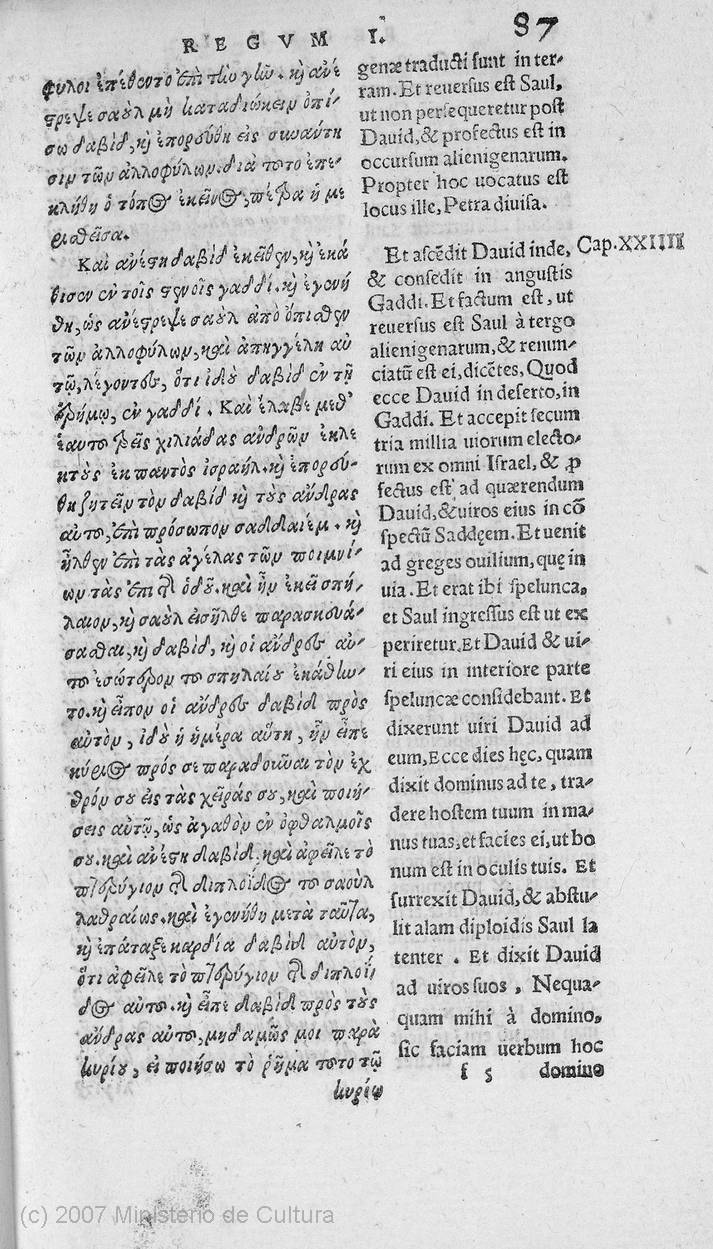 REGVM I. 87
φυλοι ἐπέθεντο ἐπὶ τὴν γῆν. καὶ ἀνέ-
στρεψε σαοὺλ μὴ καταδιώκειν ὀπί-
σω δαβίδ, καὶ ἐπορεύθη εἰς συναάντη
σιν τῶν ἀλλοφύλων. διὰ τοῦτο ἐπε-
κλήθη ὁ τόπος ἐκεῖνος, πέτρα ἡ με
ριθεῖσα.
Καὶ ἀνέστη δαβὶδ ἐκεῖθεν, καὶ ἐκά
θισεν ἐν τοῖς στενοῖς γαδδί. καὶ ἐγενή
θη, ὡς ἀνέστρεψε σαοὺλ ἀπὸ ὄπισθεν
τῶν ἀλλοφύλων, καὶ ἀπηγγέλη αὐ
τῷ, λέγοντες, ὅτι ἰδοὺ δαβὶδ ἐν τῇ
ἐρήμῳ, ἐν γαδδί. Καὶ ἔλαβε μεθ'
ἑαυτοῦ τρεῖς χιλιάδας ἀνδρῶν ἐκλε
κτοὺς ἐκ παντὸς ἰσραήλ. καὶ ἐπορεύ-
θη ζητεῖν τὸν δαβὶδ καὶ τοὺς ἄνδρας
αὐτοῦ, ἐπὶ πρόσωπον σαδδαίεμ. καὶ
ἦλθεν ἐπὶ τὰς ἀγέλας τῶν ποιμνί-
ων τὰς ἐπὶ τῆς ὁδοῦ. καὶ ἦν ἐκεῖ σπή-
λαιον, καὶ σαοὺλ εἰσῆλθε παρασκευά-
σασθαι, καὶ δαβίδ, καὶ οἱ ἄνδρες αὐ-
τοῦ ἐσώτερον τοῦ σπηλαίου ἐκάθην-
το. καὶ εἶπον οἱ ἄνδρες δαβὶδ πρὸς
αὐτόν, ἰδοὺ ἡ ἡμέρα αὕτη, ἣν εἶπε
κύριος πρός σε παραδοῦναι τὸν ἐχ
θρόν σου εἰς τὰς χεῖράς σου, καὶ ποιή-
σεις αὐτῷ, ὡς ἀγαθὸν ἐν ὀφθαλμοῖς
σου. καὶ ἀνέστη δαβίδ, καὶ ἀφεῖλε τὸ
πτερύγιον τῆς διπλοΐδος τοῦ σαοὺλ
λαθραίως. καὶ ἐγενήθη μετὰ ταῦτα,
καὶ ἐπάταξε καρδία δαβὶδ αὐτόν,
ὅτι ἀφεῖλε τὸ πτερύγιον τῆς διπλοΐ
δος αὐτοῦ. καὶ εἶπε δαβὶδ πρὸς τοὺς
ἄνδρας αὐτοῦ, μηδαμῶς μοι παρὰ
κυρίου, εἰ ποιήσω τὸ ῥῆμα τοῦτο τῷ
κυρίῳ
genæ traducti sunt in ter-
ram. Et reuersus est Saul,
ut non persequeretur post
Dauid, & profectus est in
occursum alienigenarum.
Propter hoc uocatus est
locus ille, Petra diuisa.
Et ascẽdit Dauid inde,
Cap. XXIIII
& consedit in angustis
Gaddi. Et factum est, ut
reuersus est Saul à tergo
alienigenarum, & renun-
ciatũ est ei, dicẽtes, Quod
ecce Dauid in deserto, in
Gaddi. Et accepit secum
tria millia uiorum electo-
rum ex omni Israel, & ꝓ
fectus est ad quærendum
Dauid, & uiros eius in cõ
spectũ Saddęem. Et uenit
ad greges ouilium, quę in
uia. Et erat ibi spelunca,
et Saul ingressus est ut ex
periretur. Et Dauid & ui-
ri eius in interiore parte
speluncæ considebant. Et
dixerunt uiri Dauid ad
eum, Ecce dies hęc, quam
dixit dominus ad te, tra-
dere hostem tuum in ma-
nus tuas, et facies ei, ut bo
num est in oculis tuis. Et
surrexit Dauid, & abstu-
lit alam diploidis Saul la
tenter. Et dixit Dauid
ad uiros suos, Nequa-
quam mihi à domino,
sic faciam uerbum hoc
f 5 domino
(c) 2007 Ministerio de Cultura